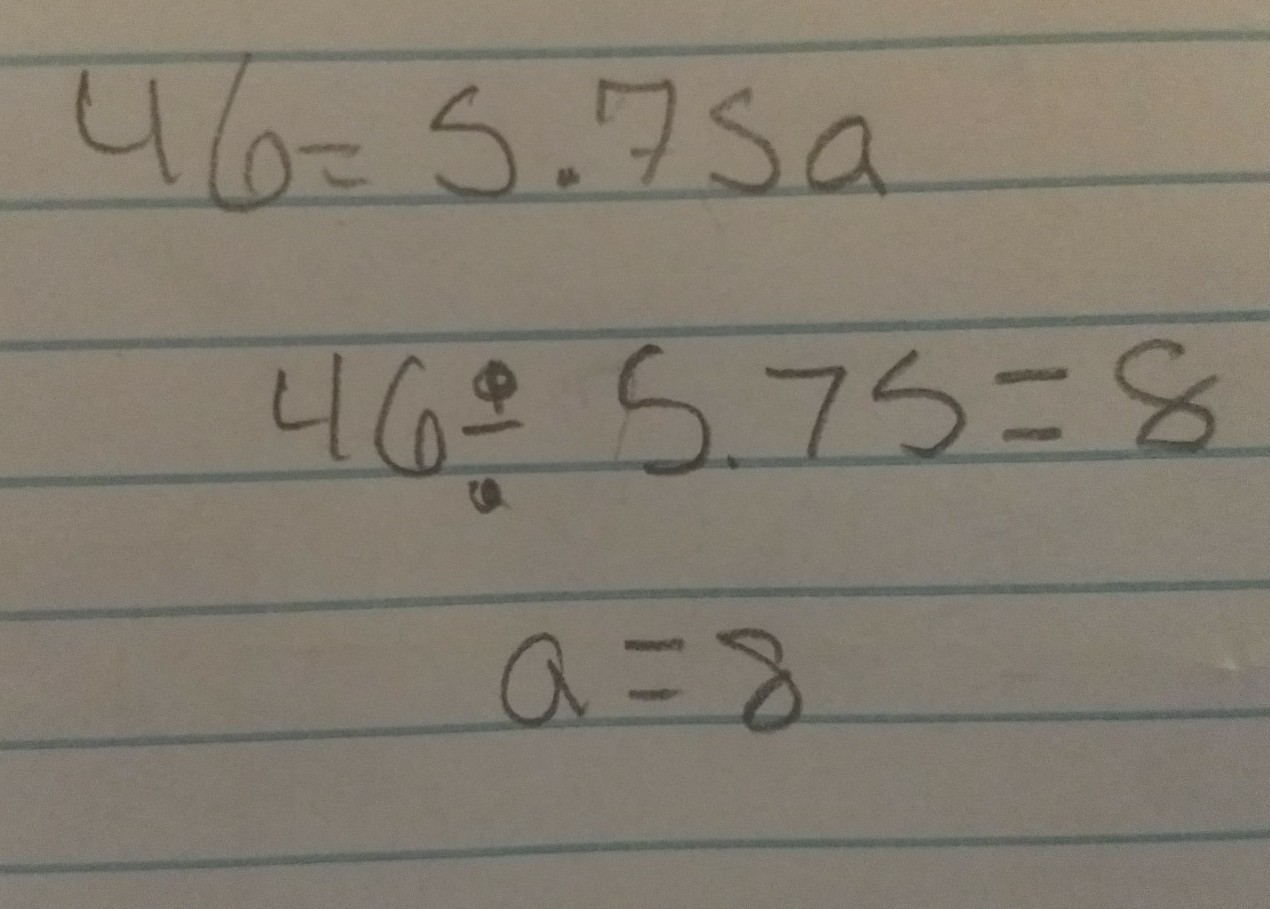 46= 5.75a
46÷ 5.75=8
a=8